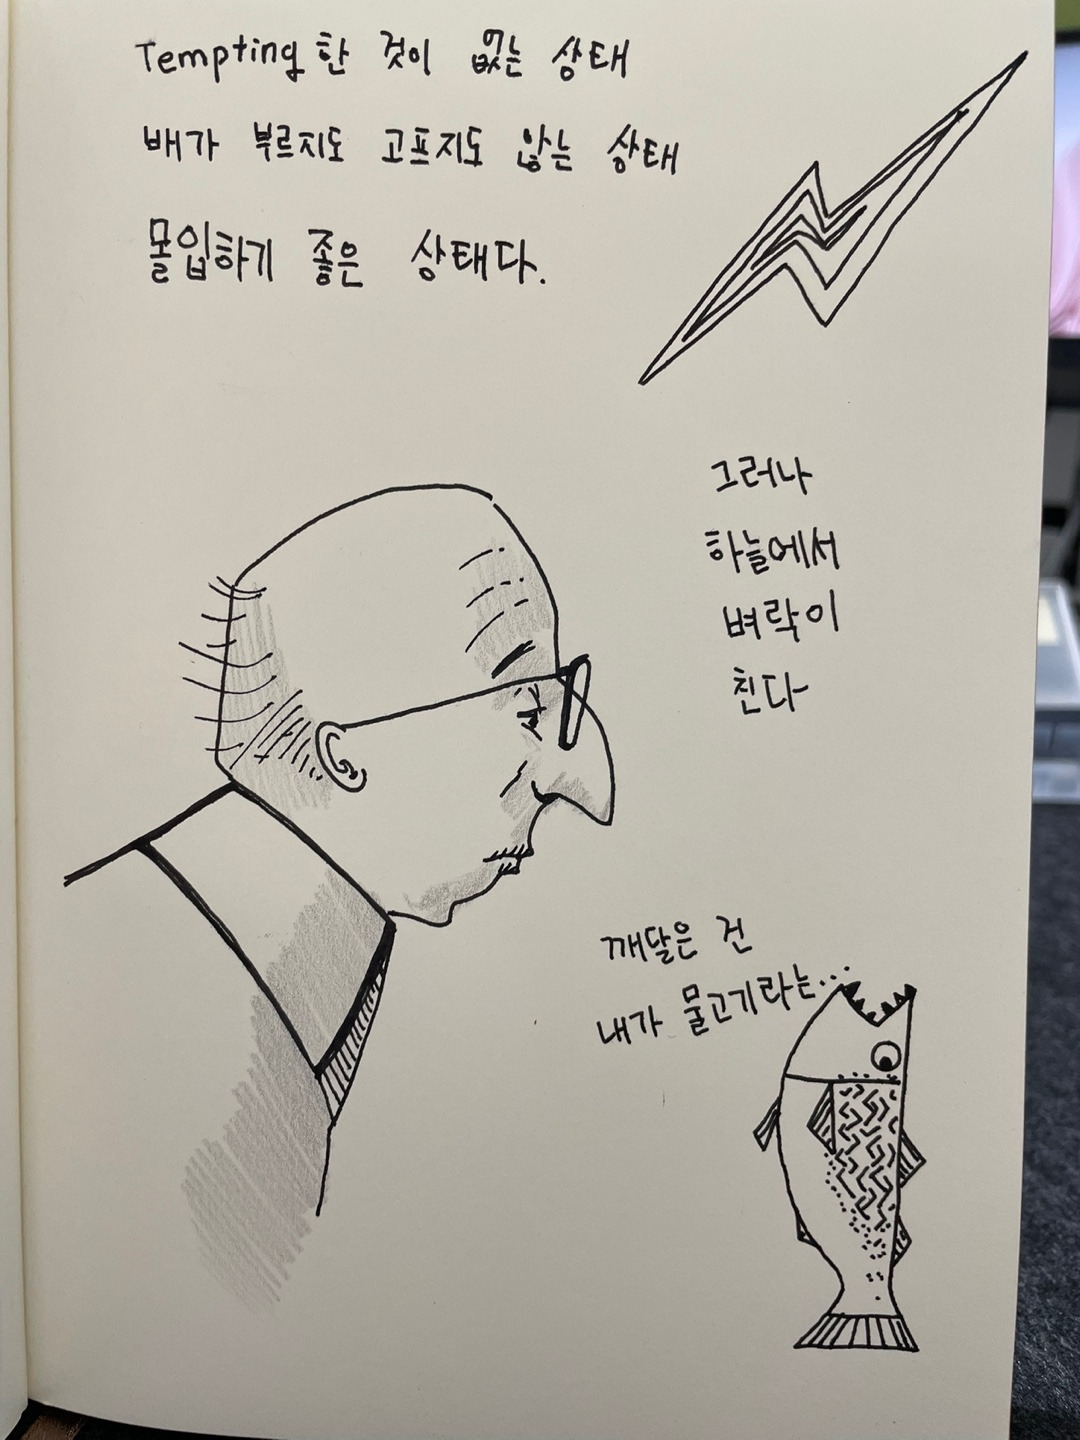 Tempting 한 것이 없는 상태
배가 부르지도 고프지도 않는 상태
몰입하기 좋은 상태다.
그러나
하늘에서
벼락이
친다
깨달은 건
내가 물고기라는...